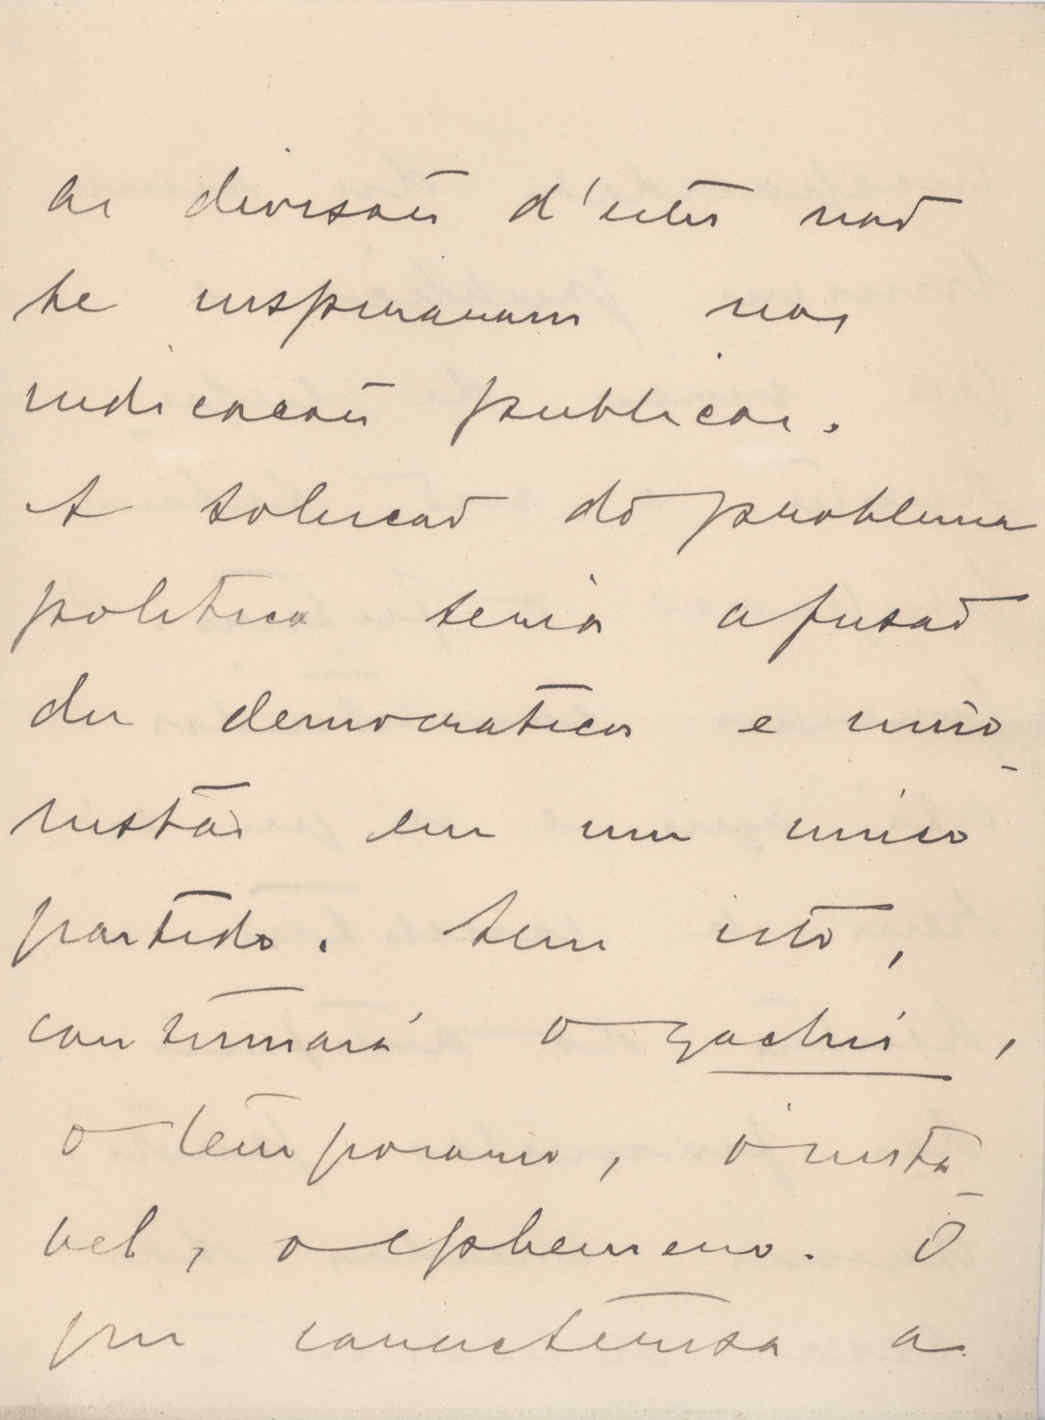 as divisões d'estes não
se inspiravam nas
indicações publicas.
A solução do problema
politico seria a fusão
dos democraticos e unio-
nistas em um unico
partido. Sem isto,
continuará o gachis,
o temporario, o insta-
vel, o ephemero. O
que caracterisa a